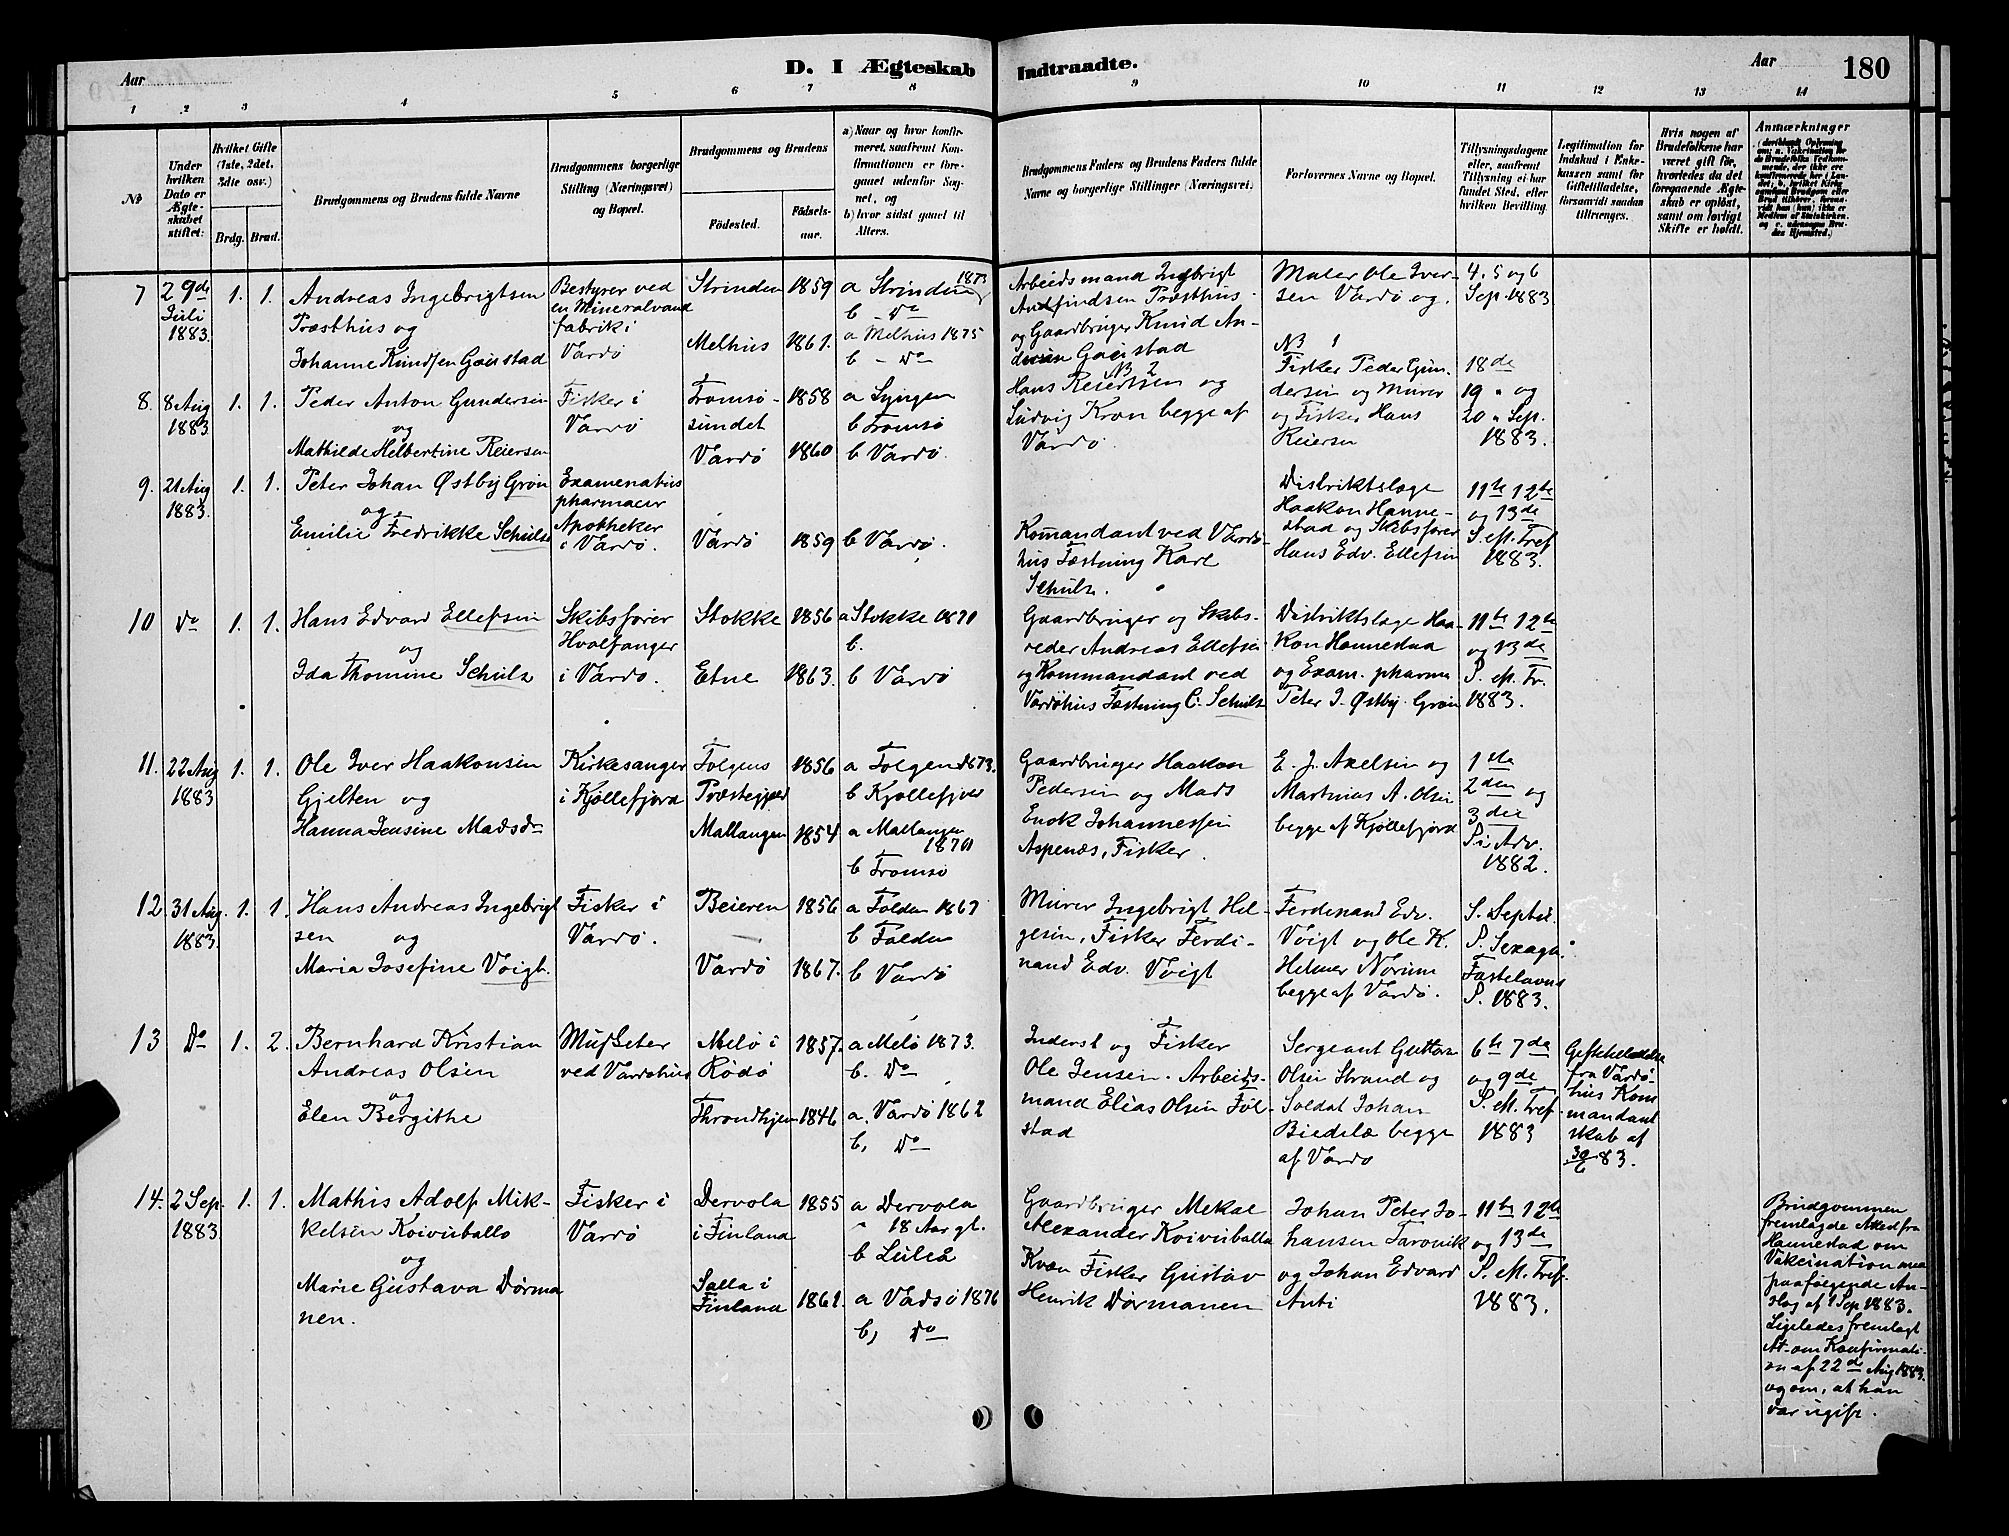 Aar
D. I Ægteskab Indtraadte.
Aar
180
1 2 3 4 5 6 7 8 9 10 11 12 13 14
No
Under hvilken Dato er Ægteskabet stiftet:
Hvilket Gifte (1ste, 2det, 3die osv.)
Brdg. Brud.
Brudgommens og Brudens fulde Navne
Brudgommens borgerlige Stilling (Næringsvei) og Bopæl.
Brudgommens og Brudens
Fødested.
Fødselsaar.
a) Naar og hvor konfirmeret, saafremt Konfirmationen er foregaaet udenfor Sognet, og
b) hvor sidst gaaet til Alters.
Brudgommens Faders og Brudens Faders fulde Navne og borgerlige Stillinger (Næringsvei)
Forlovernes Navne og Bopæl.
Tillysningsdagene eller, saafremt Tillysning ei har fundet Sted, efter hvilken Bevilling.
Legitimation for Indskud i Enkekassen samt for Giftetilladelse, forsaavidt saadan tiltrænges.
Hvis nogen af Brudefolkene har været gift før, hvorledes da det foregaaende Ægteskab er opløst, samt om lovligt Skifte er holdt.
Anmærkninger
7
29de
Juli
1883.
1. 1.
Andreas Ingebrigtsen
Præsthus og
Johanne Knudsen Gaustad
Bestyrer ved
en Mineralvand
fabrik i
Vardø
Strinden 1859
Melhus 1861.
a Strinden 1873
b - Do
a Melhus 1875
b - Do
Arbeidsmand Ingbrigt
Andfindsen Præsthus
og Gaardbruger Knud An-
Gaustad
Maler Ole Iver-
sen Vardø og
4. 5 og 6
Sep. 1883.
8.
8 Aug
1883.
1. 1.
Peder Anton Gundersen
og
Mathilde Helbertine Reiersen
Fisker i
Vardø
Tromsø-
sundet 1858
Vardø 1860
a Lyngen
b Tromsø
b Vardø.
NB 2
Hans Reiersen og
Ludvig Kron begge af
Vardø.
NB 1
Fisker Peder Gun-
dersen og Murer
og Fisker Hans
Reiersen
18de
19 " og
20 " Sep.
1883.
9.
21 Aug
1883.
1. 1.
Peter Johan Østby Grøn
og
Emilie Fredrikke Schulz
Examenatus
pharmacier
Apotheker
i Vardø.
Vardø 1859
b Vardø.
Kommandant ved Vardø-
hus Fæstning Karl
Schulz.
Distriktslæge
Haakon Hanne-
stad og Skibsfører
Hans Edv. Ellefsen
11te 12te
og 13de
S. eft. Tref
1883.
10
Do
1. 1.
Hans Edvard Ellefsen
og
Ida Thomine Schulz
Skibsfører
Hvalfanger
i Vardø.
Stokke 1856
Etne 1863.
a Stokke 1870
b.
b Vardø
Gaardbruger og Skibs-
reder Andreas Ellefsen
og Kommandant ved
Vardøhus Fæstning C. Schulz
Distriktslæge Haa-
kon Hannestad
og Exam. pharma
Peter J. Østby Grøn
11te 12te
og 13de
S. eft. Tr.
1883.
11.
22 Aug
1883
1. 1.
Ole Iver Haakonsen
Gjelten og
Hanna Jensine Madsdr
Kirkesanger
i Kjøllefjord
Tolgens
Præstegjæld 1856
Mallangen 1854
a Tolgen 1873.
b Kjøllefjord
a Mallangen
1870
b Tromsø
Gaardbruger Haakon
Pedersen og Mads
Enok Johannessen
Aspenæs, Fisker.
E. J. Axelsen og
Martinius A. Olsen
begge af Kjøllefjord
1ste
2den og
3die
S i Adv.
1882.
12
31 Aug.
1883.
1. 1.
Hans Andreas Ingebrigt
sen og
Maria Josefine Voigt.
Fisker i
Vardø.
Beieren 1856
Vardø 1867.
a Folden 1867
b Folden
b Vardø
Murer Ingebrigt Hel-
gesen, Fisker Ferdi-
nand Edv. Voigt
Ferdenand Edv.
Voigt og Ole K.
Helmer Norum
begge af Vardø.
S. Septu.
S. Sexag.
Fastelavns
S. 1883.
13
Do
1. 2.
Bernhard Kristian
Andreas Olsen
og
Elen Bergithe
Musketer
ved Vardøhus
Melø i
Rødø 1857.
Throndhjem 1846
a Melø 1873.
b. Do
a. Vardø 1862
b, Do
Inderst og Fisker
Ole Jensen. Arbeids-
mand Elias Olsen Føl-
stad
Sergeant Guttorm
Olsen Strand og
Soldat Johan
begge
af Vardø
6te 7de
og 9de
S. eft. Tref.
1883
Giftetilladelse
fra Vardø-
hus Kom
mandant
skab af
30/6 83.
14.
2 Sep.
1883.
1. 1.
Mathis Adolf Mik-
kelsen Koivuballo
og
Marie Gustava Dørma
nen.
Fisker i
Vardø
Dervola
i Finland 1855
Salla i
Finland 1861.
a Dervola
18 Aar gl.
b Luleå
a Vadsø 1876
b, Do
Gaardbruger Mekal
Alexander Koivuballa
Kvæn Fisker Gustav
Henrik Dørmanen
Johan Peter Jo-
hansen Tarovik
og Johan Edvard
Anti
11te 12te
og 13de
S. eft. Tref.
1883.
Brudgommen
fremlagde Atted fra
Hannestad om
Vakcination med
paafølgende An-
slag af 1 Sep 1883.
Ligeledes fremlagt
At. om Konfirmati-
on af 22de Aug 1883.
og om, at han
var ugift.